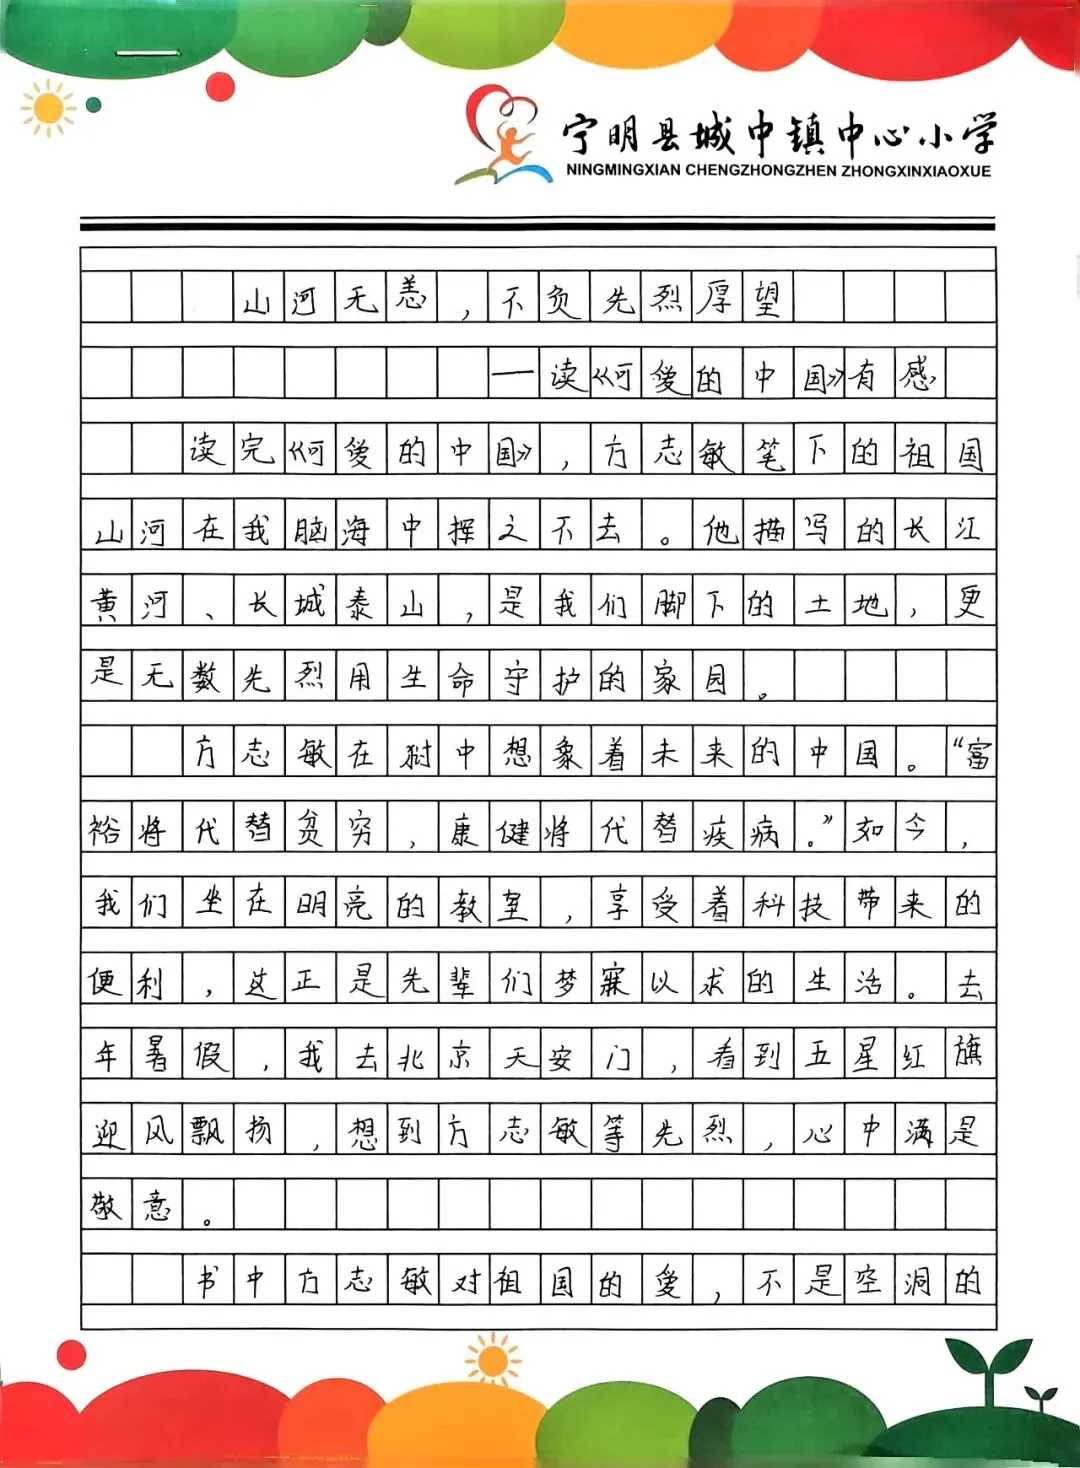 宁明县城中镇中心小学
NINGMINGXIAN CHENGZHONGZHEN ZHONGXINXIAOXUE
山河无恙，不负先烈厚望
——读《可爱的中国》有感
读完《可爱的中国》，方志敏笔下的祖国
山河在我脑海中挥之不去。他描写的长江
黄河、长城泰山，是我们脚下的土地，更
是无数先烈用生命守护的家园。
方志敏在狱中想象着未来的中国。“富
裕将代替贫穷，康健将代替疾病。”如今，
我们坐在明亮的教室，享受着科技带来的
便利，这正是先辈们梦寐以求的生活。去
年暑假，我去北京天安门，看到五星红旗
迎风飘扬，想到方志敏等先烈，心中满是
敬意。
书中方志敏对祖国的爱，不是空洞的